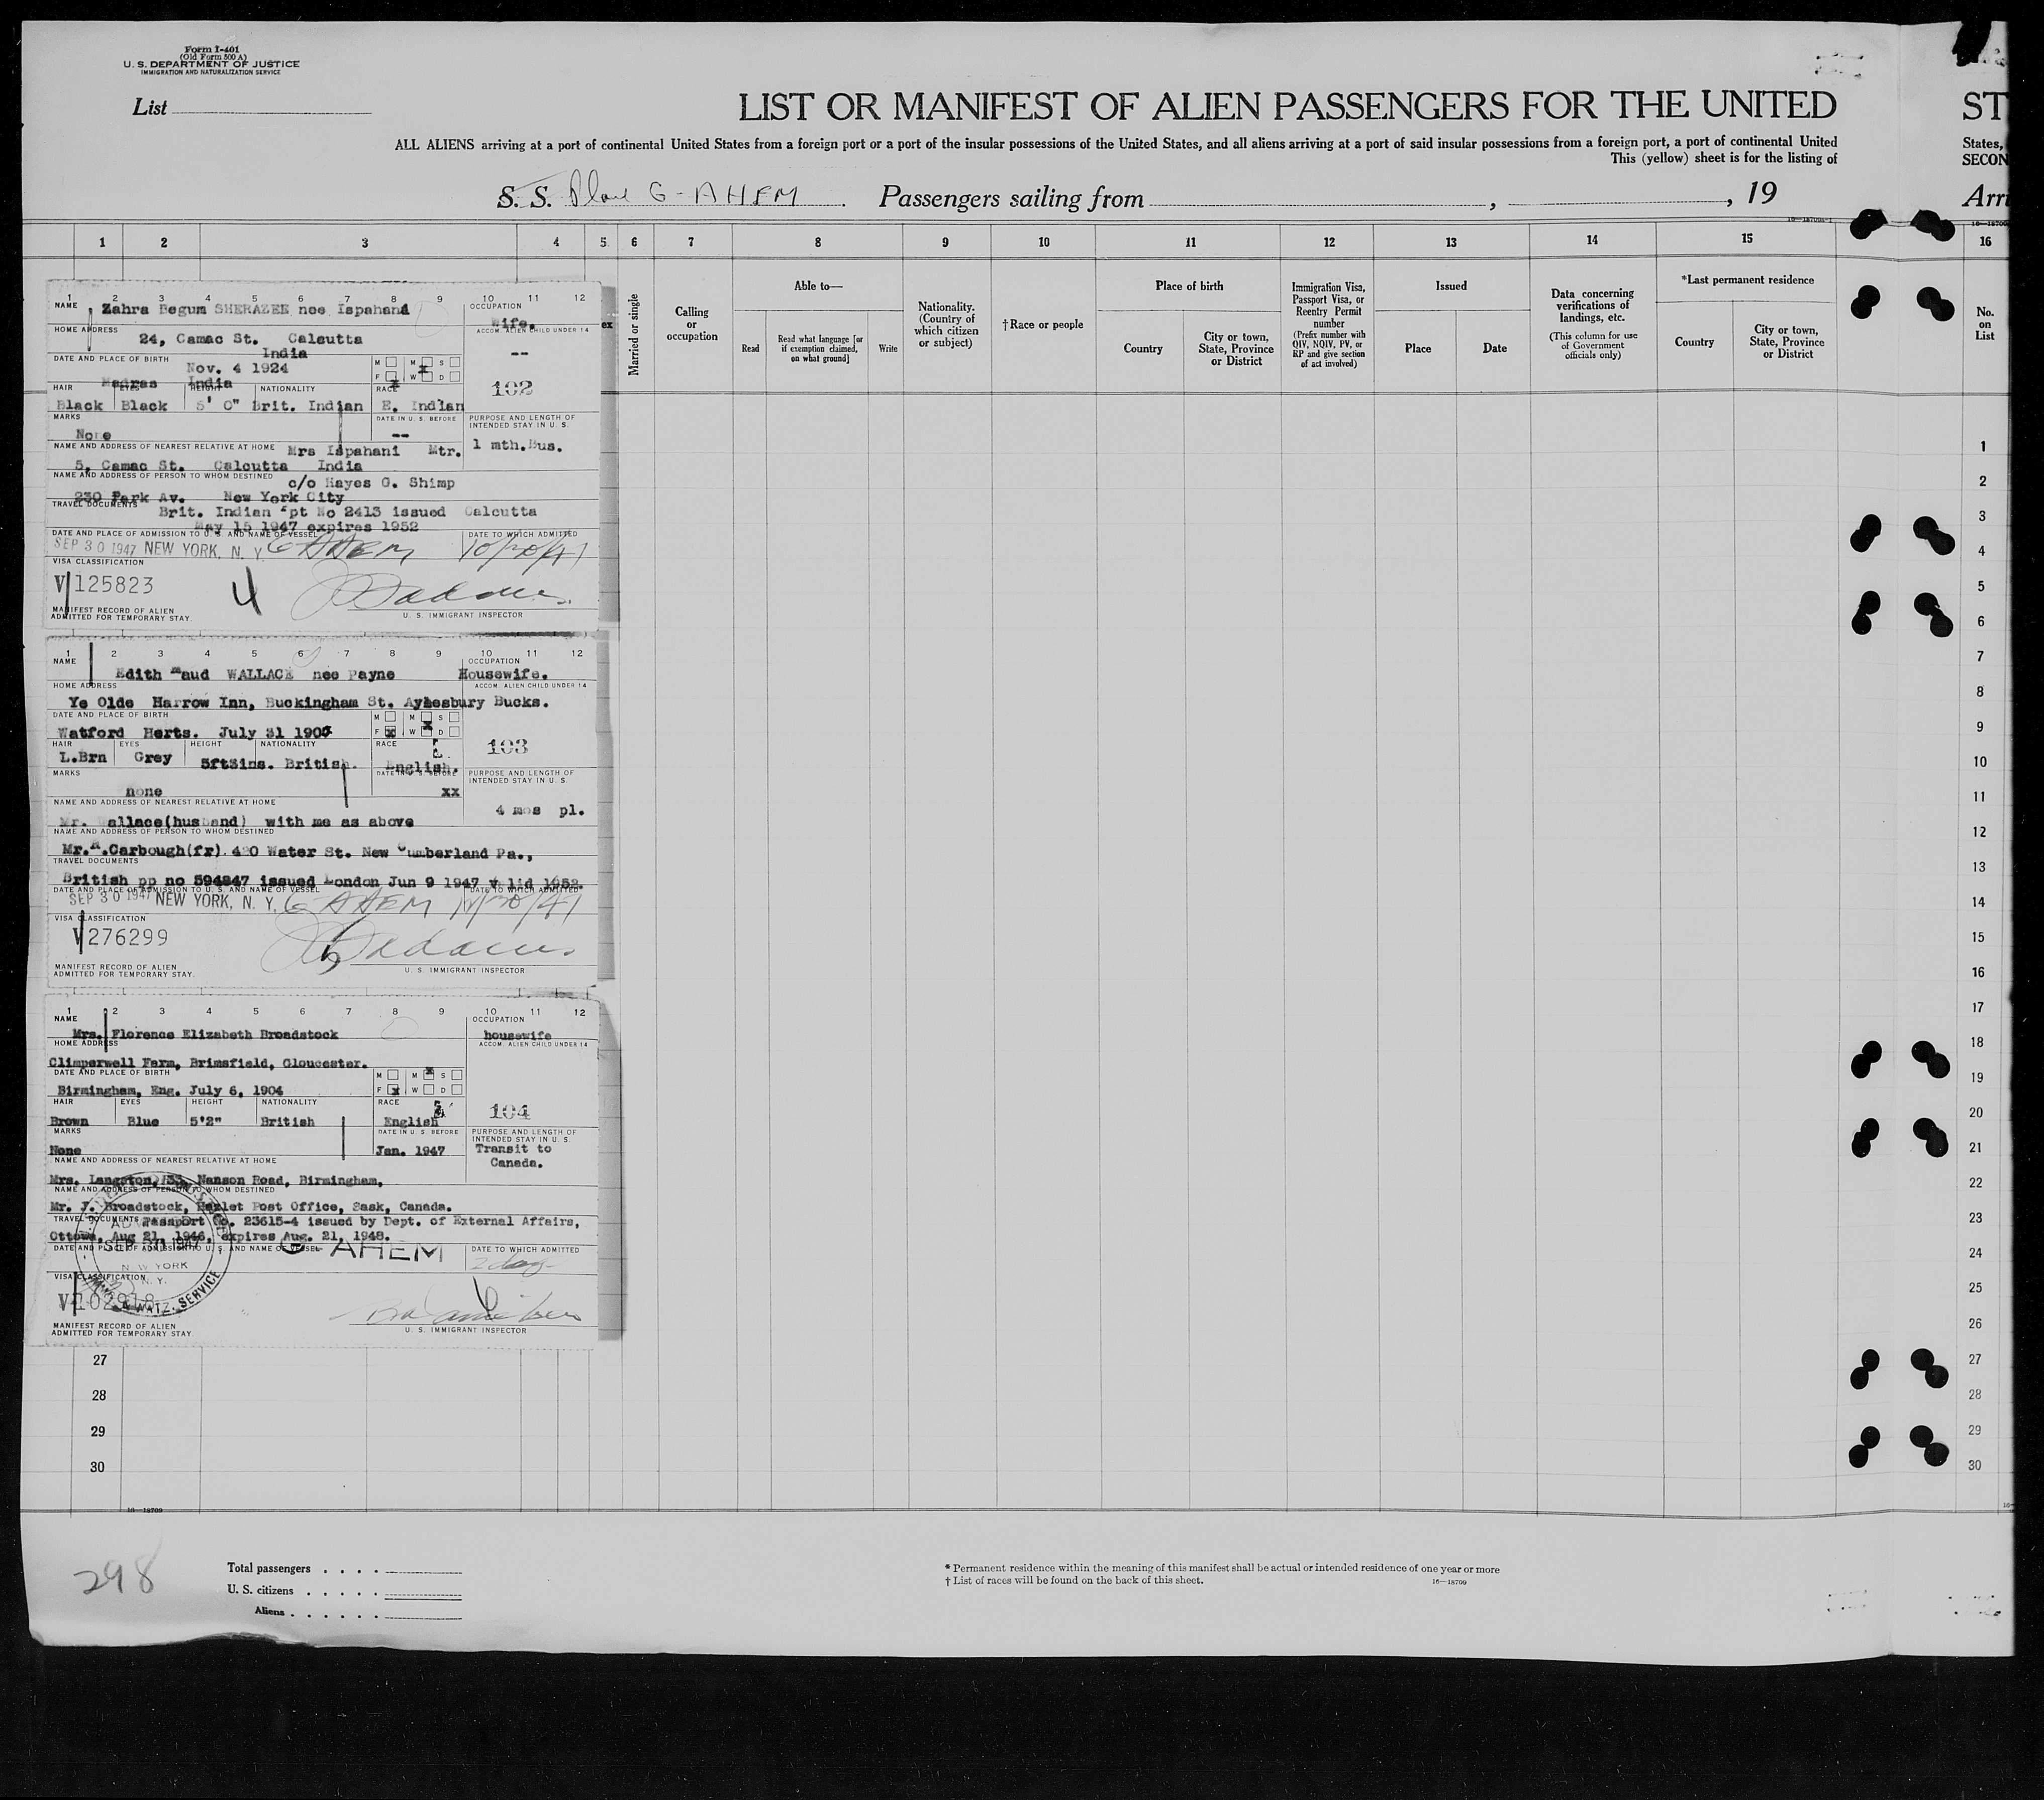 Form I-401
(Old Form 500 A)
U. S. DEPARTMENT OF JUSTICE
IMMIGRATION AND NATURALIZATION SERVICE
List
LIST OR MANIFEST OF ALIEN PASSENGERS FOR THE UNITED
ST
ALL ALIENS arriving at a port of continental United States from a foreign port or a port of the insular possessions of the United States, and all aliens arriving at a port of said insular possessions from a foreign port, a port of continental United
States,
This (yellow) sheet is for the listing of
SECON
S. S. Plane G-AHEM. Passengers sailing from , , 19
Arri
1 2 3 4 5 6 7 8 9 10 11 12 13 14 15 16
Married or single
Calling or occupation
Able to—
Read
Read what language [or if exemption claimed, on what ground]
Write
Nationality. (Country of which citizen or subject)
†Race or people
Place of birth
Country
City or town, State, Province or District
Immigration Visa, Passport Visa, or Reentry Permit number
(Prefix number with QIV, NQIV, PV, or RP and give section of act involved)
Issued
Place
Date
Data concerning verifications of landings, etc.
(This column for use of Government officials only)
*Last permanent residence
Country
City or town, State, Province or District
No. on List
1 2 3 4 5 6 7 8 9 10 11 12
NAME
Zahra Begum SHERAZEE nee Ispahani
OCCUPATION
Wife.
ex
HOME ADDRESS
24, Camac St. Calcutta
India
ACCOM. ALIEN CHILD UNDER 14
--
DATE AND PLACE OF BIRTH
Nov. 4 1924
Madras India
M M S
F W D
x
x
102
HAIR EYES HEIGHT NATIONALITY RACE
Black Black 5' 0" Brit. Indian E. Indian
MARKS
None
DATE IN U. S. BEFORE
--
PURPOSE AND LENGTH OF INTENDED STAY IN U. S.
1 mth. Bus.
NAME AND ADDRESS OF NEAREST RELATIVE AT HOME
Mrs Ispahani Mtr.
5, Camac St. Calcutta India
NAME AND ADDRESS OF PERSON TO WHOM DESTINED
c/o Hayes G. Shimp
230 Park Av. New York City
TRAVEL DOCUMENTS
Brit. Indian Ppt No 2413 issued Calcutta
May 15 1947 expires 1952
DATE AND PLACE OF ADMISSION TO U. S. AND NAME OF VESSEL
DATE TO WHICH ADMITTED
SEP 30 1947 NEW YORK, N. Y. G AHEM 10/30/47
VISA CLASSIFICATION
V 125823
4
MANIFEST RECORD OF ALIEN
ADMITTED FOR TEMPORARY STAY.
U. S. IMMIGRANT INSPECTOR
1 2 3 4 5 6 7 8 9 10 11 12
NAME
Edith Maud WALLACE nee Payne
OCCUPATION
Housewife.
HOME ADDRESS
ACCOM. ALIEN CHILD UNDER 14
Ye Olde Harrow Inn, Buckingham St. Aylesbury Bucks.
DATE AND PLACE OF BIRTH
Watford Herts. July 31 190
M M S
F x W x D
103
HAIR EYES HEIGHT NATIONALITY RACE
L.Brn Grey 5ft3ins. British. English.
MARKS
none
DATE IN U. S. BEFORE
xx
PURPOSE AND LENGTH OF INTENDED STAY IN U. S.
4 mos pl.
NAME AND ADDRESS OF NEAREST RELATIVE AT HOME
Mr. Wallace(husband) with me as above
NAME AND ADDRESS OF PERSON TO WHOM DESTINED
Mr. .Carbough(fr) 420 Water St. New Cumberland Pa.,
TRAVEL DOCUMENTS
British pp no 594847 issued London Jun 9 1947 valid 1952.
DATE AND PLACE OF ADMISSION TO U. S. AND NAME OF VESSEL
DATE TO WHICH ADMITTED
SEP 30 1947 NEW YORK, N. Y. G AHEM
VISA CLASSIFICATION
V 276299
MANIFEST RECORD OF ALIEN
ADMITTED FOR TEMPORARY STAY.
U. S. IMMIGRANT INSPECTOR
1 2 3 4 5 6 7 8 9 10 11 12
NAME
Mrs. Florence Elizabeth Broadstock
OCCUPATION
housewife
HOME ADDRESS
ACCOM. ALIEN CHILD UNDER 14
Climperwell Farm, Brimsfield, Gloucester.
DATE AND PLACE OF BIRTH
Birmingham, Eng. July 6, 1904
M M x S
F x W D
104
HAIR EYES HEIGHT NATIONALITY RACE
Brown Blue 5'2" British English
MARKS
None
DATE IN U. S. BEFORE
Jan. 1947
PURPOSE AND LENGTH OF INTENDED STAY IN U. S.
Transit to
Canada.
NAME AND ADDRESS OF NEAREST RELATIVE AT HOME
Mrs. Langston, Nanson Road, Birmingham,
NAME AND ADDRESS OF PERSON TO WHOM DESTINED
Mr. J. Broadstock, Hazlet Post Office, Sask, Canada.
TRAVEL DOCUMENTS
Passport No. 23615-4 issued by Dept. of External Affairs,
Ottowa, Aug 21, 1946, expires Aug. 21, 1948.
DATE AND PLACE OF ADMISSION TO U. S. AND NAME OF VESSEL
G AHEM
DATE TO WHICH ADMITTED
2 days
NEW YORK
N. Y.
& NATZ. SERVICE
VISA CLASSIFICATION
MANIFEST RECORD OF ALIEN
ADMITTED FOR TEMPORARY STAY.
U. S. IMMIGRANT INSPECTOR
27
28
29
30
1
2
3
4
5
6
7
8
9
10
11
12
13
14
15
16
17
18
19
20
21
22
23
24
25
26
27
28
29
30
16—18709
298
Total passengers . . . .
U. S. citizens . . . . .
Aliens . . . . . .
* Permanent residence within the meaning of this manifest shall be actual or intended residence of one year or more
† List of races will be found on the back of this sheet.
16—18709